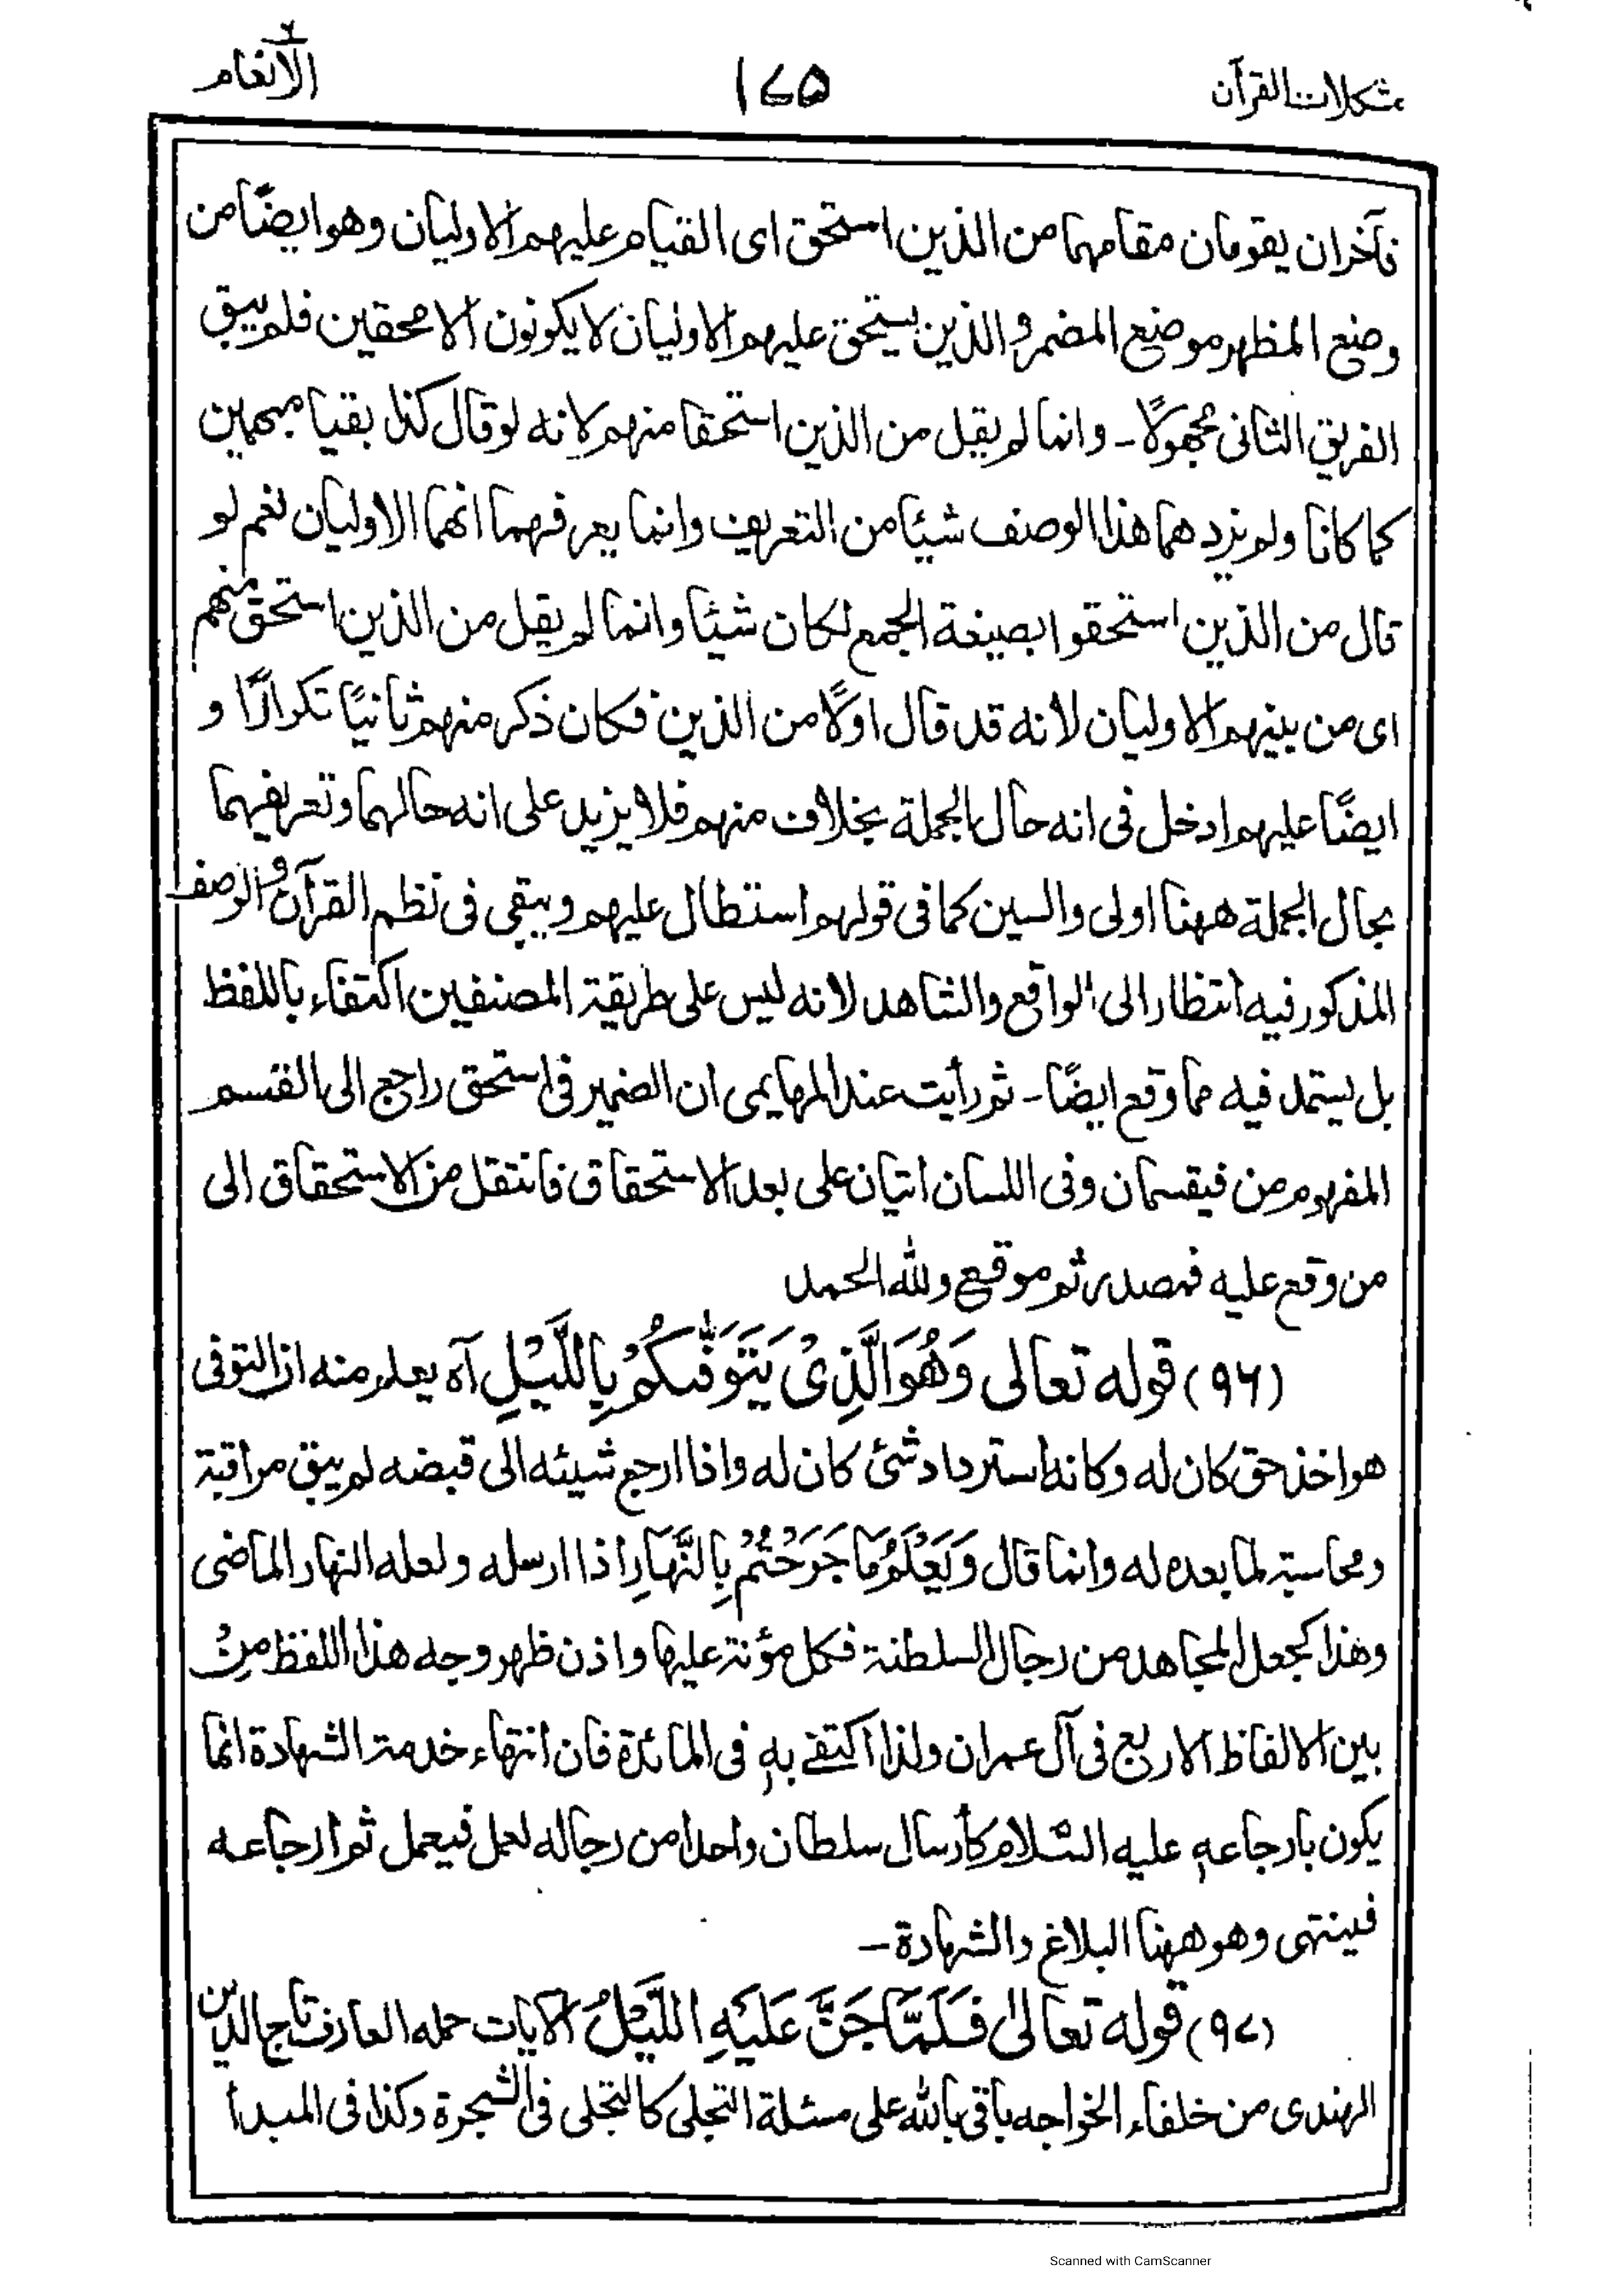 مشكلات القرآن ۱۷۵ الانعام ٦
فآخران يقومان مقامهما من الذين استحق اى القيام عليهم الاوليان وهو ايضًا من
وضع المظهر موضع المضمر والذين يستحق عليهم الاوليان لا يكونون الا محقين فلم يبق
الفريق الثانى مجهولًا ـ وانما لم يقل من الذين استحقا منهم لانه لو قال كذا بقيا مبهمين
كما كانا ولم يزدهما هذا الوصف شيئا من التعريف وانما يعرفهما انهما الاوليان نعم لو
قال من الذين استحقوا بصيغة الجمع لكان شيئا وانما لم يقل من الذين استحق منهم
اى من بينهم الاوليان لانه قد قال اولًا من الذين فكان ذكر منهم ثانيًا تكرارًا و
ايضًا عليهم ادخل فى انه حال الجملة بخلاف منهم فلا يزيد على انه حالهما وتعريفهما
بحال الجملة ههنا اولى والسين كما فى قولهم استطال عليهم ويبقى فى نظم القرآن والوصف
المذكور فيه انتظار الى الواقع والشاهد لانه ليس على طريقة المصنفين اكتفاء باللفظ
بل يستمد فيه مما وقع ايضًا ـ ثم رأيت عند المهايمى ان الضمير فى استحق راجع الى القسم
المفهوم من فيقسمان وفى اللسان اتيان على بعد الاستحقاق فانتقل من الاستحقاق الى
من وقع عليه فمصدر ثم موقع ولله الحمد
(۹۶) قوله تعالى وَهُوَ الَّذِىْ يَتَوَفّٰىكُمْ بِاللَّيْلِ آه يعلم منه ان التوفى
هو اخذ حق كان له وكانه استرداد شئ كان له واذا ارجع شيئه الى قبضه لم يبق مراقبة
ومحاسبة لما بعده له وانما قال وَيَعْلَمُ مَا جَرَحْتُمْ بِالنَّهَارِ اذا ارسله ولعله النهار الماضى
وهذا كجعل المجاهد من رجال السلطنة فكل مؤنة عليها واذن ظهر وجه هذا اللفظ مِنْ
بين الالفاظ الاربع فى آل عمران ولذا اكتفے بهٖ فى المائدة فان انتهاء خدمة الشهادة انما
يكون بارجاعهٖ عليه السّلام كأرسال سلطان واحدا من رجاله لعمل فيعمل ثم ارجاعه
فينتهى وهو ههنا البلاغ والشهادة ـ
(۹۷) قوله تعالىٰ فَلَمَّا جَنَّ عَلَيْهِ اللَّيْلُ الآيات حمله العارف تاج الدين
الهندى من خلفاء الخواجه باقى بالله على مسئلة التجلى كالتجلى فى الشجرة وكذا فى المبدأ
Scanned with CamScanner